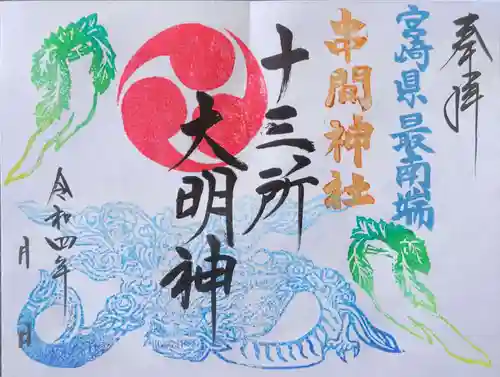 奉拝
宮崎県最南端
串間神社
十三所
大明神
令和四年
月 日